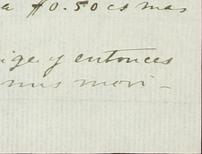 a $0.50 cs mas
ige y entonces
mus movi-